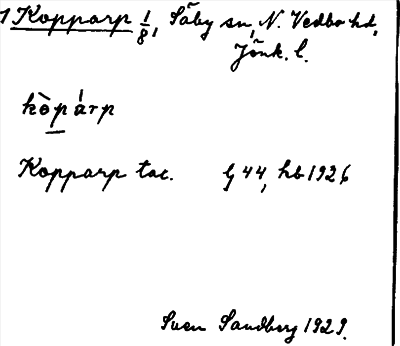 1 Kopparp 1/8, Säby sn, N. Vedbo hd,
Jönk. l.
kòpárp
Kopparp tac. G 44, hb 1926
Sven Sandberg 1929.